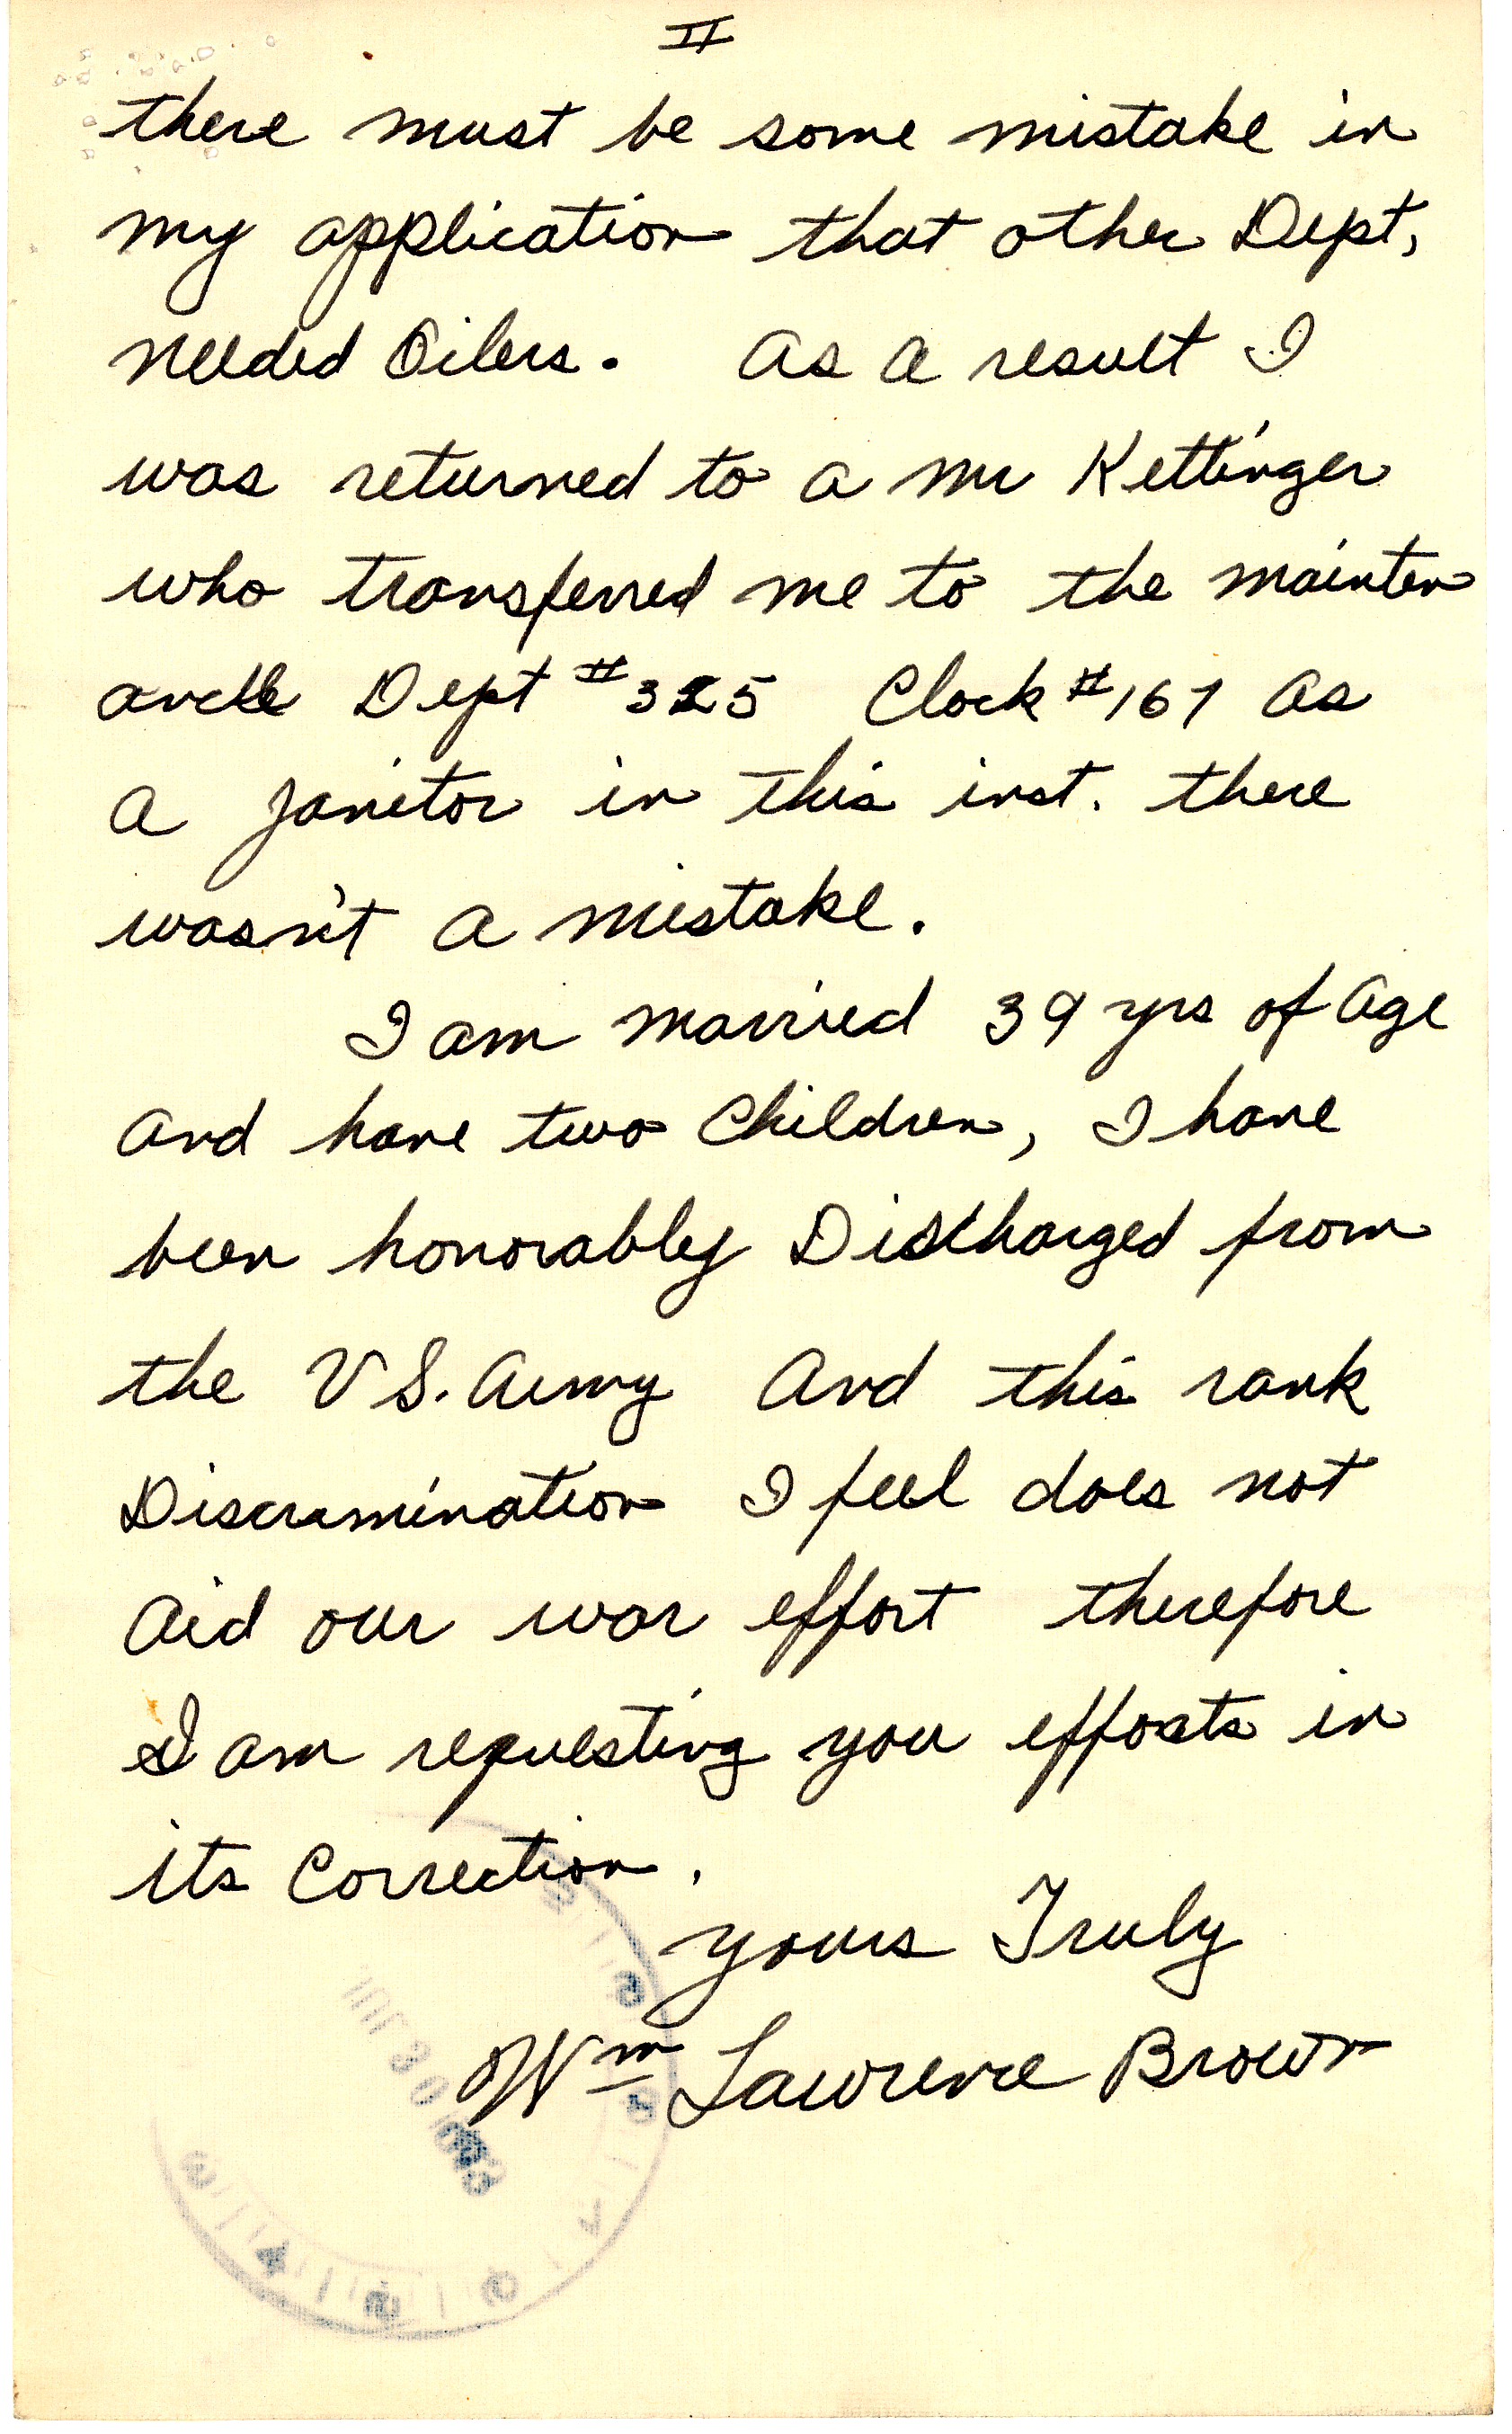 II
there must be some mistake in
my application that other Dept,
needed Oilers. As a result I
was returned to a Mr Kettinger
who transferred me to the mainten
ance Dept #325 Clock #167 as
a janitor in this inst. there
wasn't a mistake.
I am married 39 yrs of age
And have two Children, I have
been honorably Discharged from
the U S. Army And this rank
Discramination I feel does not
Aid our war effort therefore
I am requesting you efforts in
its Correction.
yours Truly
Wm Lawrence Brown